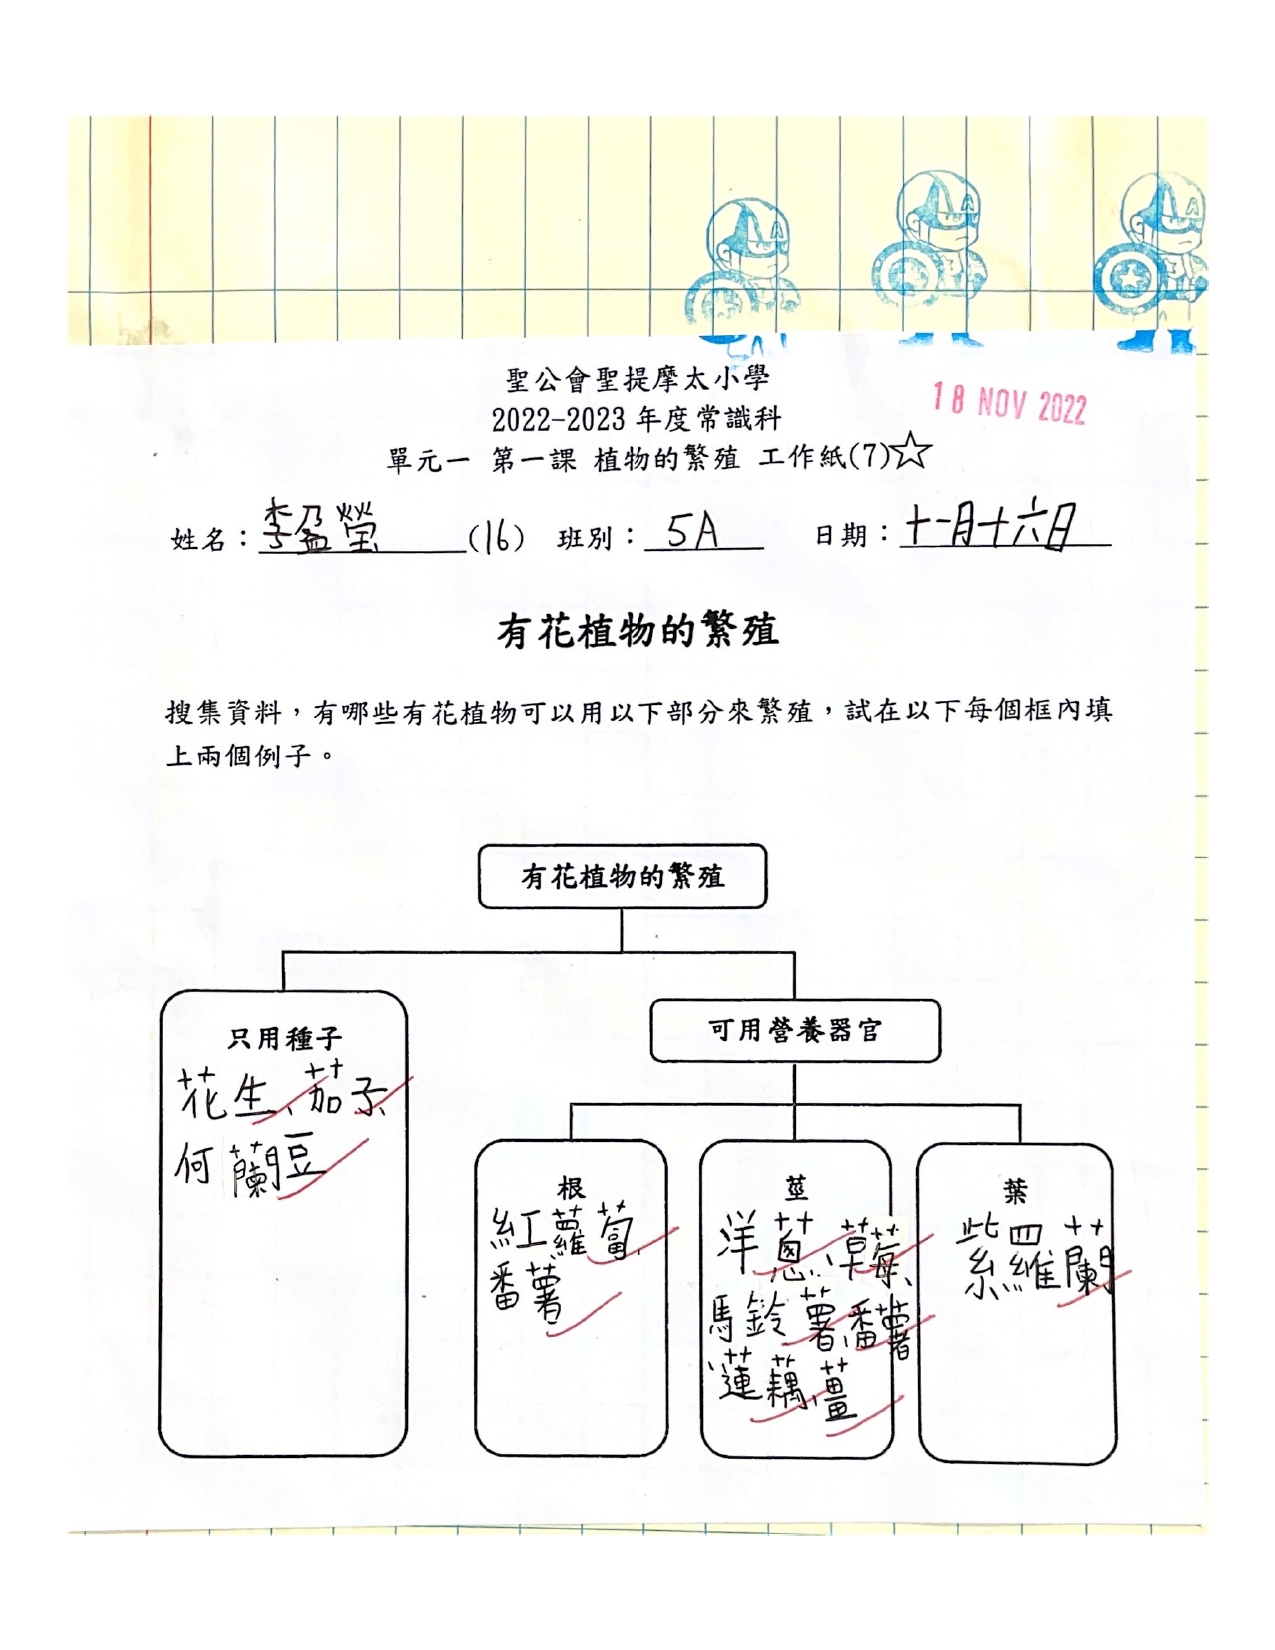 聖公會聖提摩太小學
2022-2023 年度常識科
18 NOV 2022
單元一 第一課 植物的繁殖 工作紙(7)☆
姓名：李盈瑩(16) 班別：5A 日期：十一月十六日
有花植物的繁殖
搜集資料，有哪些有花植物可以用以下部分來繁殖，試在以下每個框內填
上兩個例子。
有花植物的繁殖
只用種子
花生、茄子、
何蘭豆
可用營養器官
根
紅蘿蔔、
番薯
莖
洋蔥、草莓、
馬鈴薯、番薯
蓮藕、薑
葉
紫羅蘭